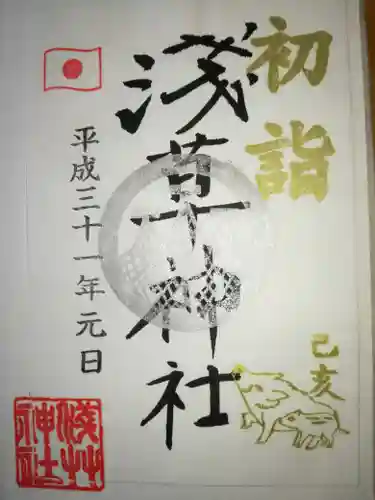 初詣
己亥
浅草神社
平成三十一年元日
浅草神社